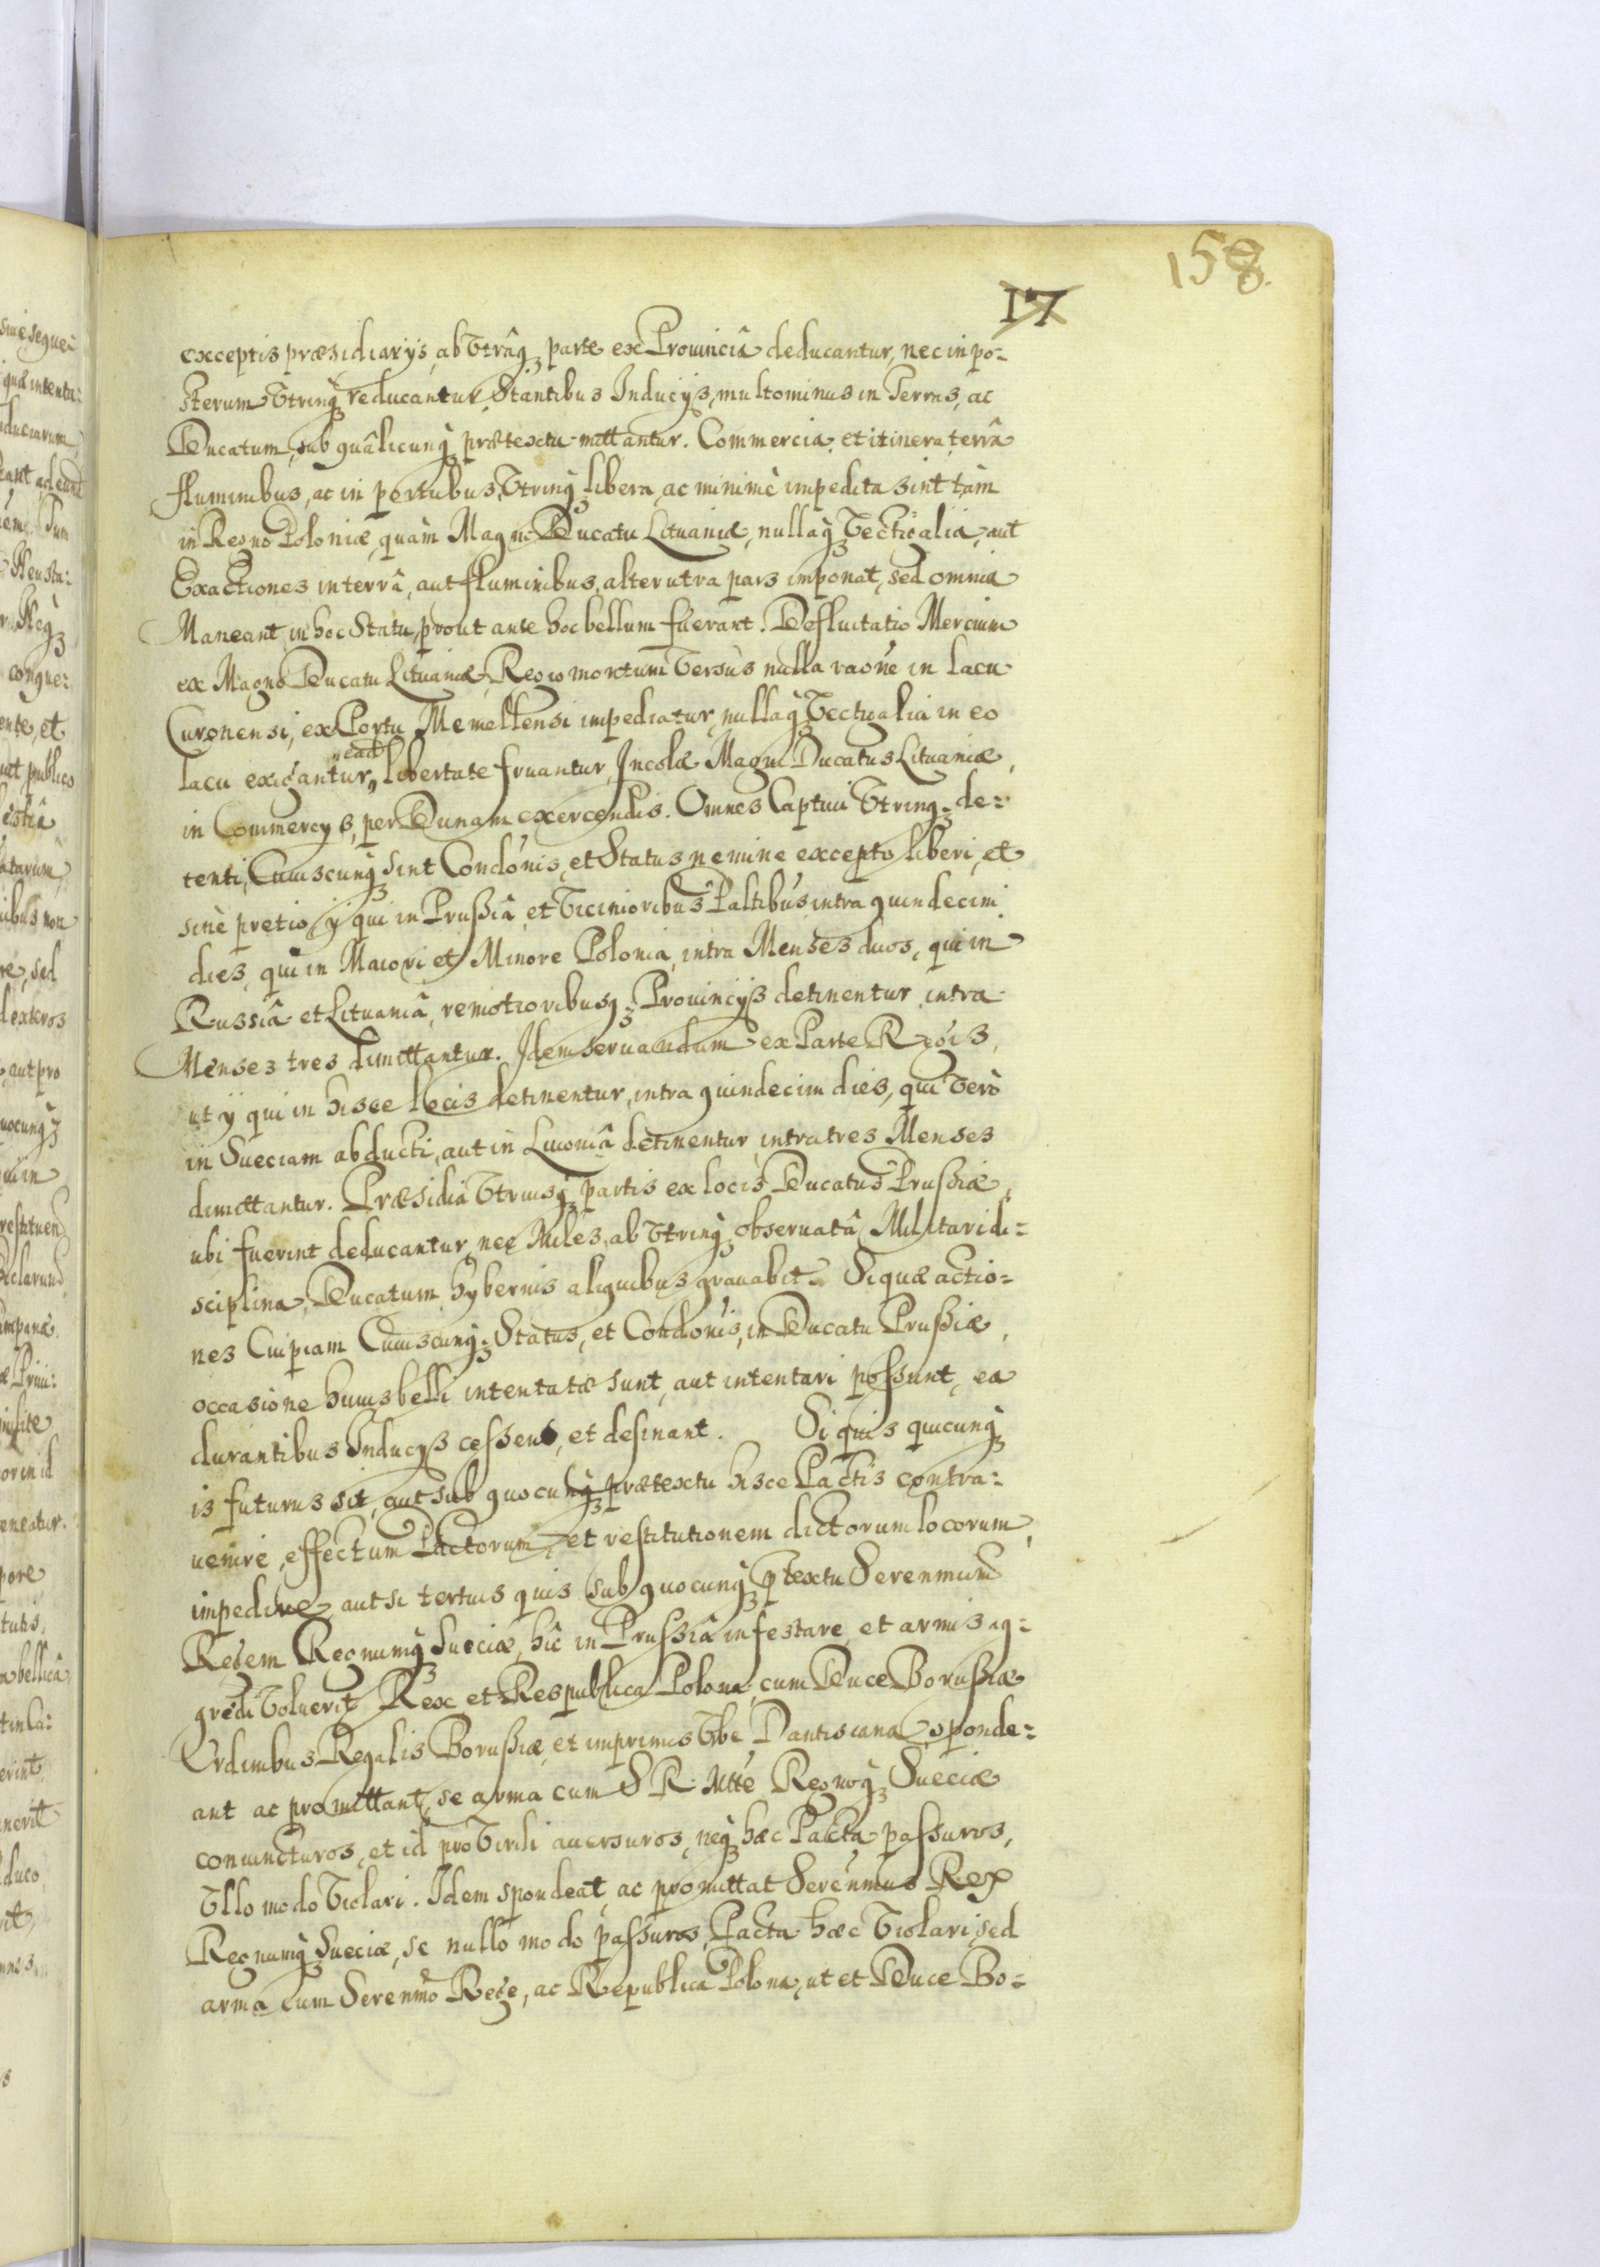 158.
17
exceptis præsidiarÿs, ab Vtrâq3 parte ex Prouinciâ deducantur, nec in po=
sterum Vtrinq3 reducantur, Stantibus Inducÿs, multominus in Terras, ac
Ducatum, sub quâlicunq3 prætextu mittantur. Commercia et itinera terrâ
fluminibus, ac in portubus, Vtrinq3 libera, ac minimè impedita sint tàm
in Regno Poloniæ, quàm Magno Ducatu Lituaniæ, nullaq3 Vectigalia, aut
Exactiones in terrâ, aut fluminibus, alterutra pars imponat, sed omnia
Maneant in hoc Statu, prout ante hoc bellum fuerant. Defluitatio Mercium
ex Magno Ducatu Lituaniæ, Regiomontum Versùs nulla raone in lacu
Curonensi, ex Portu Memellensi impediatur, nullaq3 Vectigalia in eo
lacu exigantur, ead libertate fruantur, Incolæ Magni Ducatus Lituaniæ,
in Commercÿs, per Dunam exercendis. Omnes Captiui Vtrinq3 de=
tenti, Cuiuscunq3 sint Condonis, et Status nemine excepto liberi, et
sinè pretio ÿ qui in Prußiâ, et Vicinioribus Paltibus intra quindecim
dies, qui in Maiori et Minore Polonia, intra Menses duos, qui in
Russiâ et Lituaniâ, remotioribusq3 Prouincÿs detinentur, intra
Menses tres dimittantur. Idem seruandum ex Parte Regis,
ut ÿ qui in hisce locis detinentur, intra quindecim dies, qui Verò
in Sueciam abducti, aut in Liuoniâ detinentur, intra tres Menses
dimittantur. Præsidia Vtriusq3 partis ex locis Ducatus Prußiæ,
ubi fuerint deducantur, nec Miles, ab Vtrinq3 obseruatâ Militari di=
sciplina, Ducatum hybernis aliquibus grauabit. Si quæ actio=
nes Cuipiam Cuiuscunq3 Status, et Condonis, in Ducatu Prußiæ,
occasione huius belli intentatæ sunt, aut intentari possunt, ea
durantibus Inducÿs cessent, et desinant. Si quis quicunq3
is futurus sit, aut sub quocunq3 prætextu hisce Pactis contra=
uenire, effectum Pactorum, et restitutionem dictorum locorum,
impedire, aut si tertius quis sub quocunq3 ptextu Serenmum
Regem Regnumq3 Sueciæ, hîc in Prußiâ infestare, et armis ag=
gredi Voluerit, Rex et Respublica Polona, cum Duce Borußiæ
Ordinibus Regalis Borußiæ, et imprimis Vrbe Dantiscana, sponde=
ant ac promittant, se arma cum S R. Mtte Regnoq3 Sueciæ
coniuncturos, et id pro Virili auersuros, neq3 hæc Pacta passuros,
Vllo modo Violari. Idem spondeat, ac promittat Serenmus Rex
Regnumq3 Sueciæ, se nullo modo passuros, Pacta hæc Violari, sed
arma cum Serenmo Rege, ac Republica Polona, ut et Duce Bo=